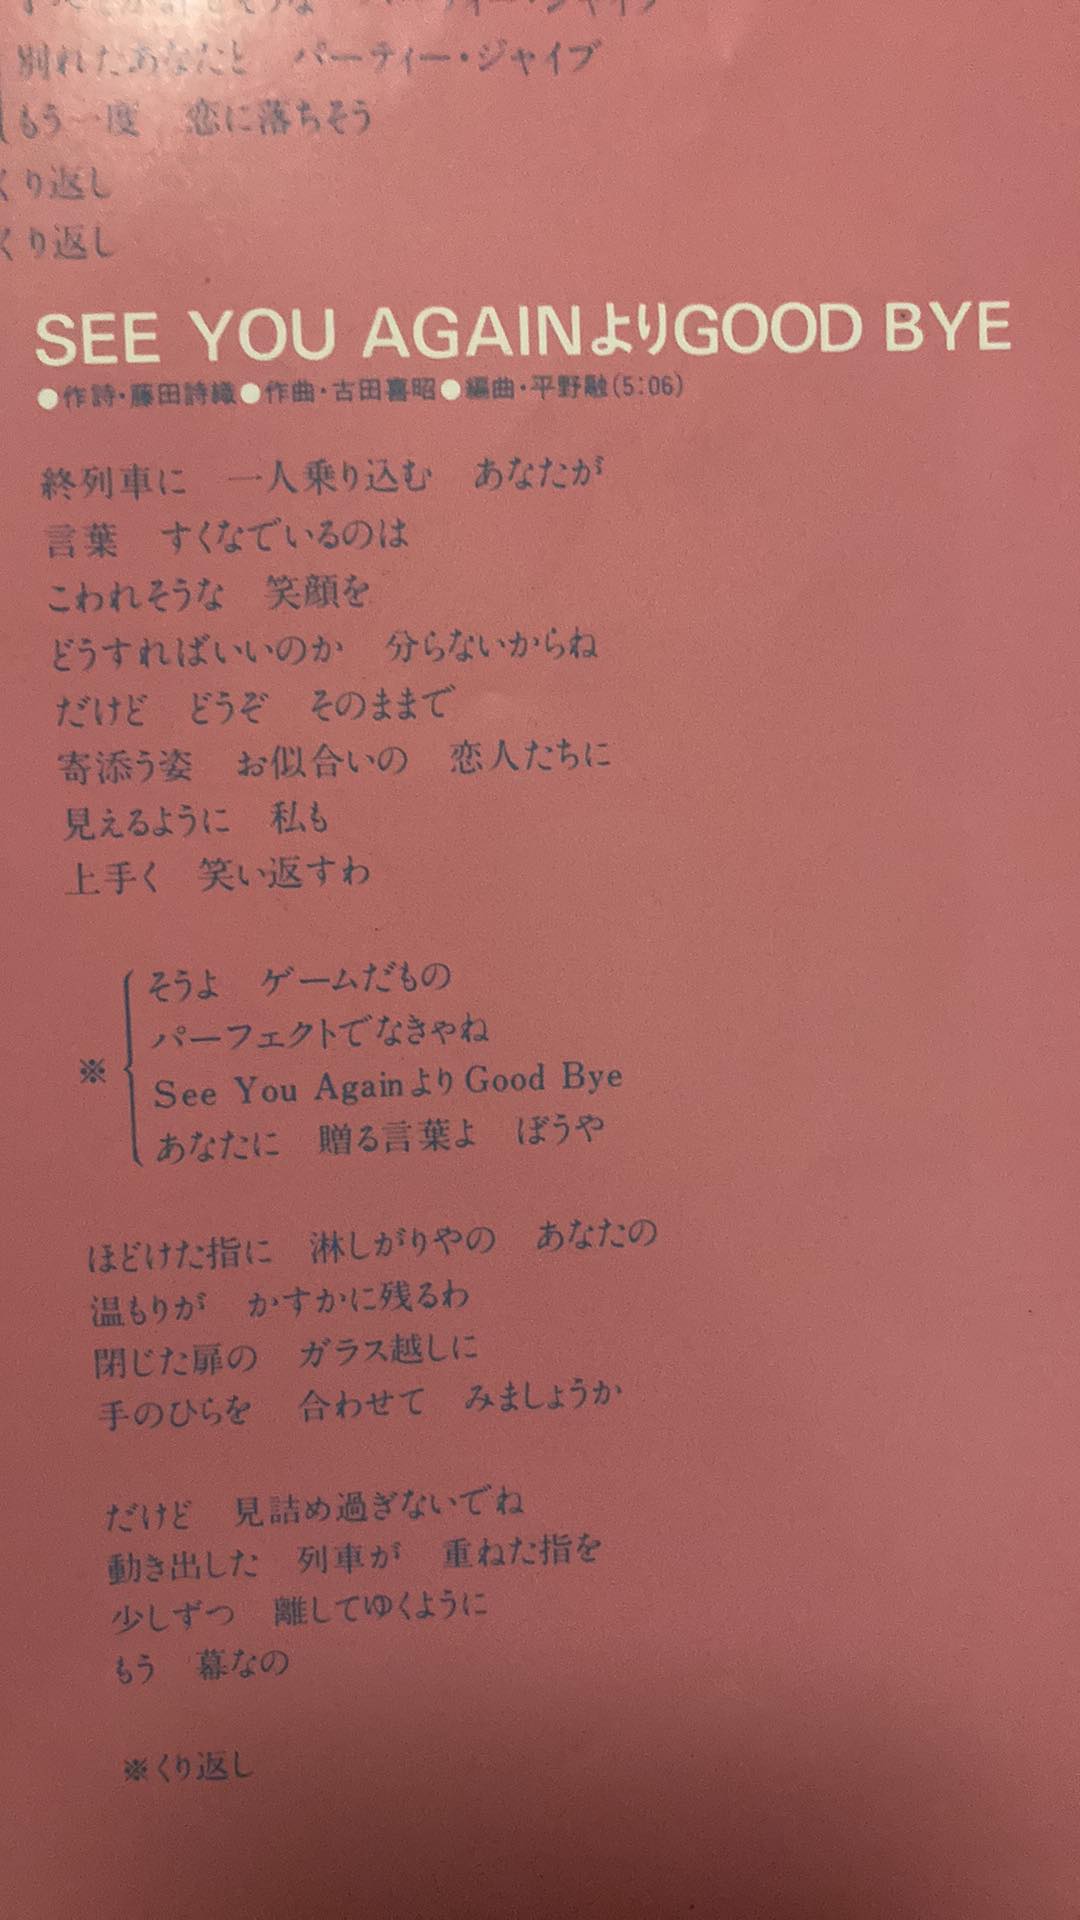 別れたあなたと　パーティー・ジャイブ
もう一度　恋に落ちそう
くり返し
くり返し
SEE YOU AGAINよりGOOD BYE
●作詩・藤田詩織●作曲・古田喜昭●編曲・平野融(5:06)
終列車に　一人乗り込む　あなたが
言葉　すくなでいるのは
こわれそうな　笑顔を
どうすればいいのか　分らないからね
だけど　どうぞ　そのままで
寄添う姿　お似合いの　恋人たちに
見えるように　私も
上手く　笑い返すわ
そうよ　ゲームだもの
パーフェクトでなきゃね
※ See You AgainよりGood Bye
あなたに　贈る言葉よ　ぼうや
ほどけた指に　淋しがりやの　あなたの
温もりが　かすかに残るわ
閉じた扉の　ガラス越しに
手のひらを　合わせて　みましょうか
だけど　見詰め過ぎないでね
動き出した　列車が　重ねた指を
少しずつ　離してゆくように
もう　幕なの
※くり返し